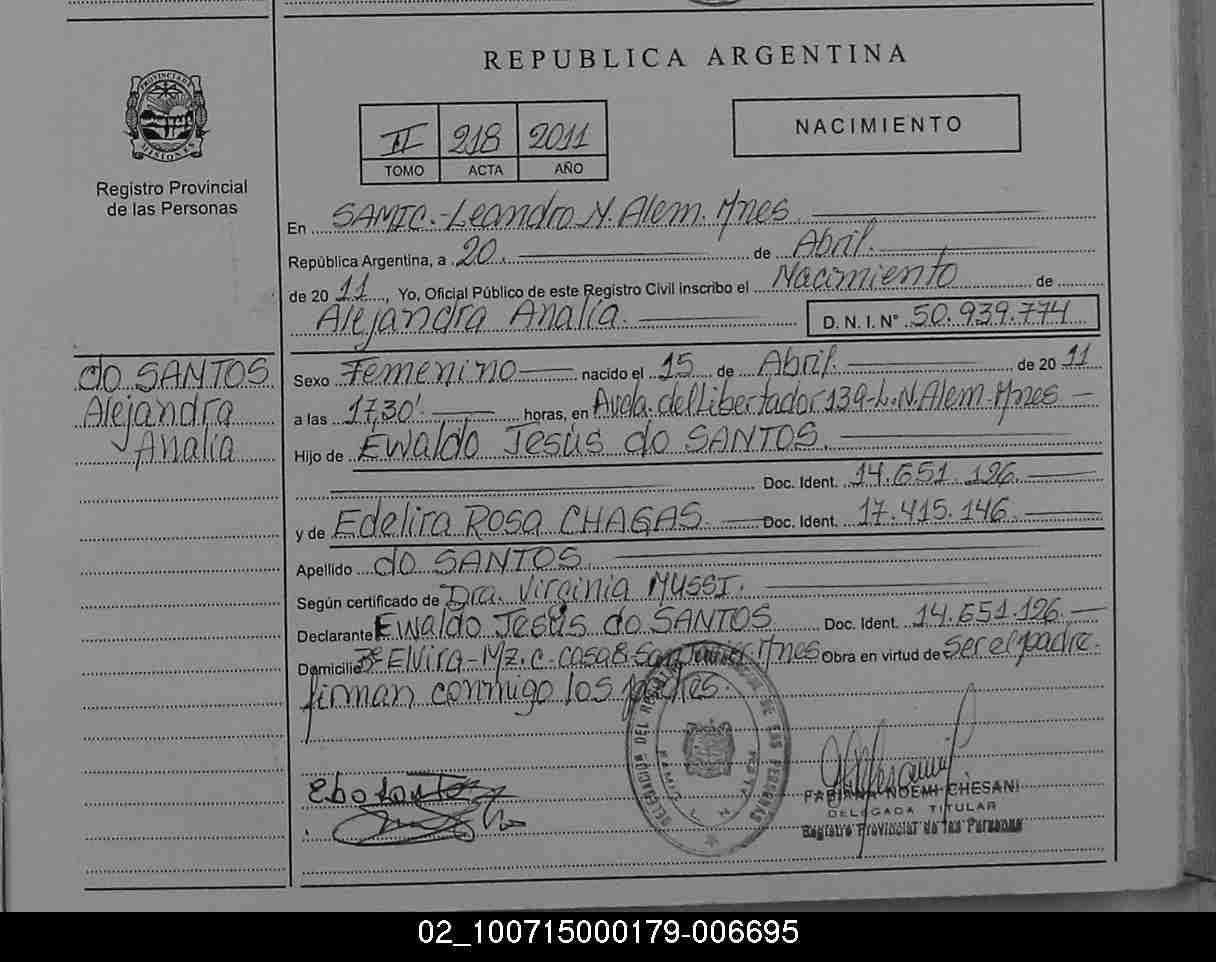 REPUBLICA ARGENTINA
PROVINCIA DE
MISIONES
Registro Provincial
de las Personas
II 218 2011
TOMO ACTA AÑO
NACIMIENTO
En SAMIC.-Leandro N. Alem. Mnes
República Argentina, a 20 de Abril.
de 2011, Yo, Oficial Público de este Registro Civil inscribo el Nacimiento de
Alejandra Analía. D. N. I. Nº 50.939.774
do SANTOS
Alejandra
Analía
Sexo Femenino nacido el 15 de Abril. de 2011
a las 17,30' horas, en Avda. del Libertador 139-L.N.Alem-Mnes
Hijo de Ewaldo Jesús do SANTOS.
Doc. Ident. 14.651.126.
y de Edelira Rosa CHAGAS. Doc. Ident. 17.415.146.
Apellido do SANTOS.
Según certificado de Dra. Virginia MUSSI.
Declarante Ewaldo Jesús do SANTOS Doc. Ident. 14.651.126.
Domicilio Bº Elvira-Mz.C. casa 8 San Javier Mnes Obra en virtud de ser el padre.
firman conmigo los padres.
DELEGACION DEL REGISTRO PROVINCIAL DE LAS PERSONAS
FABIANA NOEMI CHESANI
DELEGADA TITULAR
Registro Provincial de las Personas
02_100715000179-006695